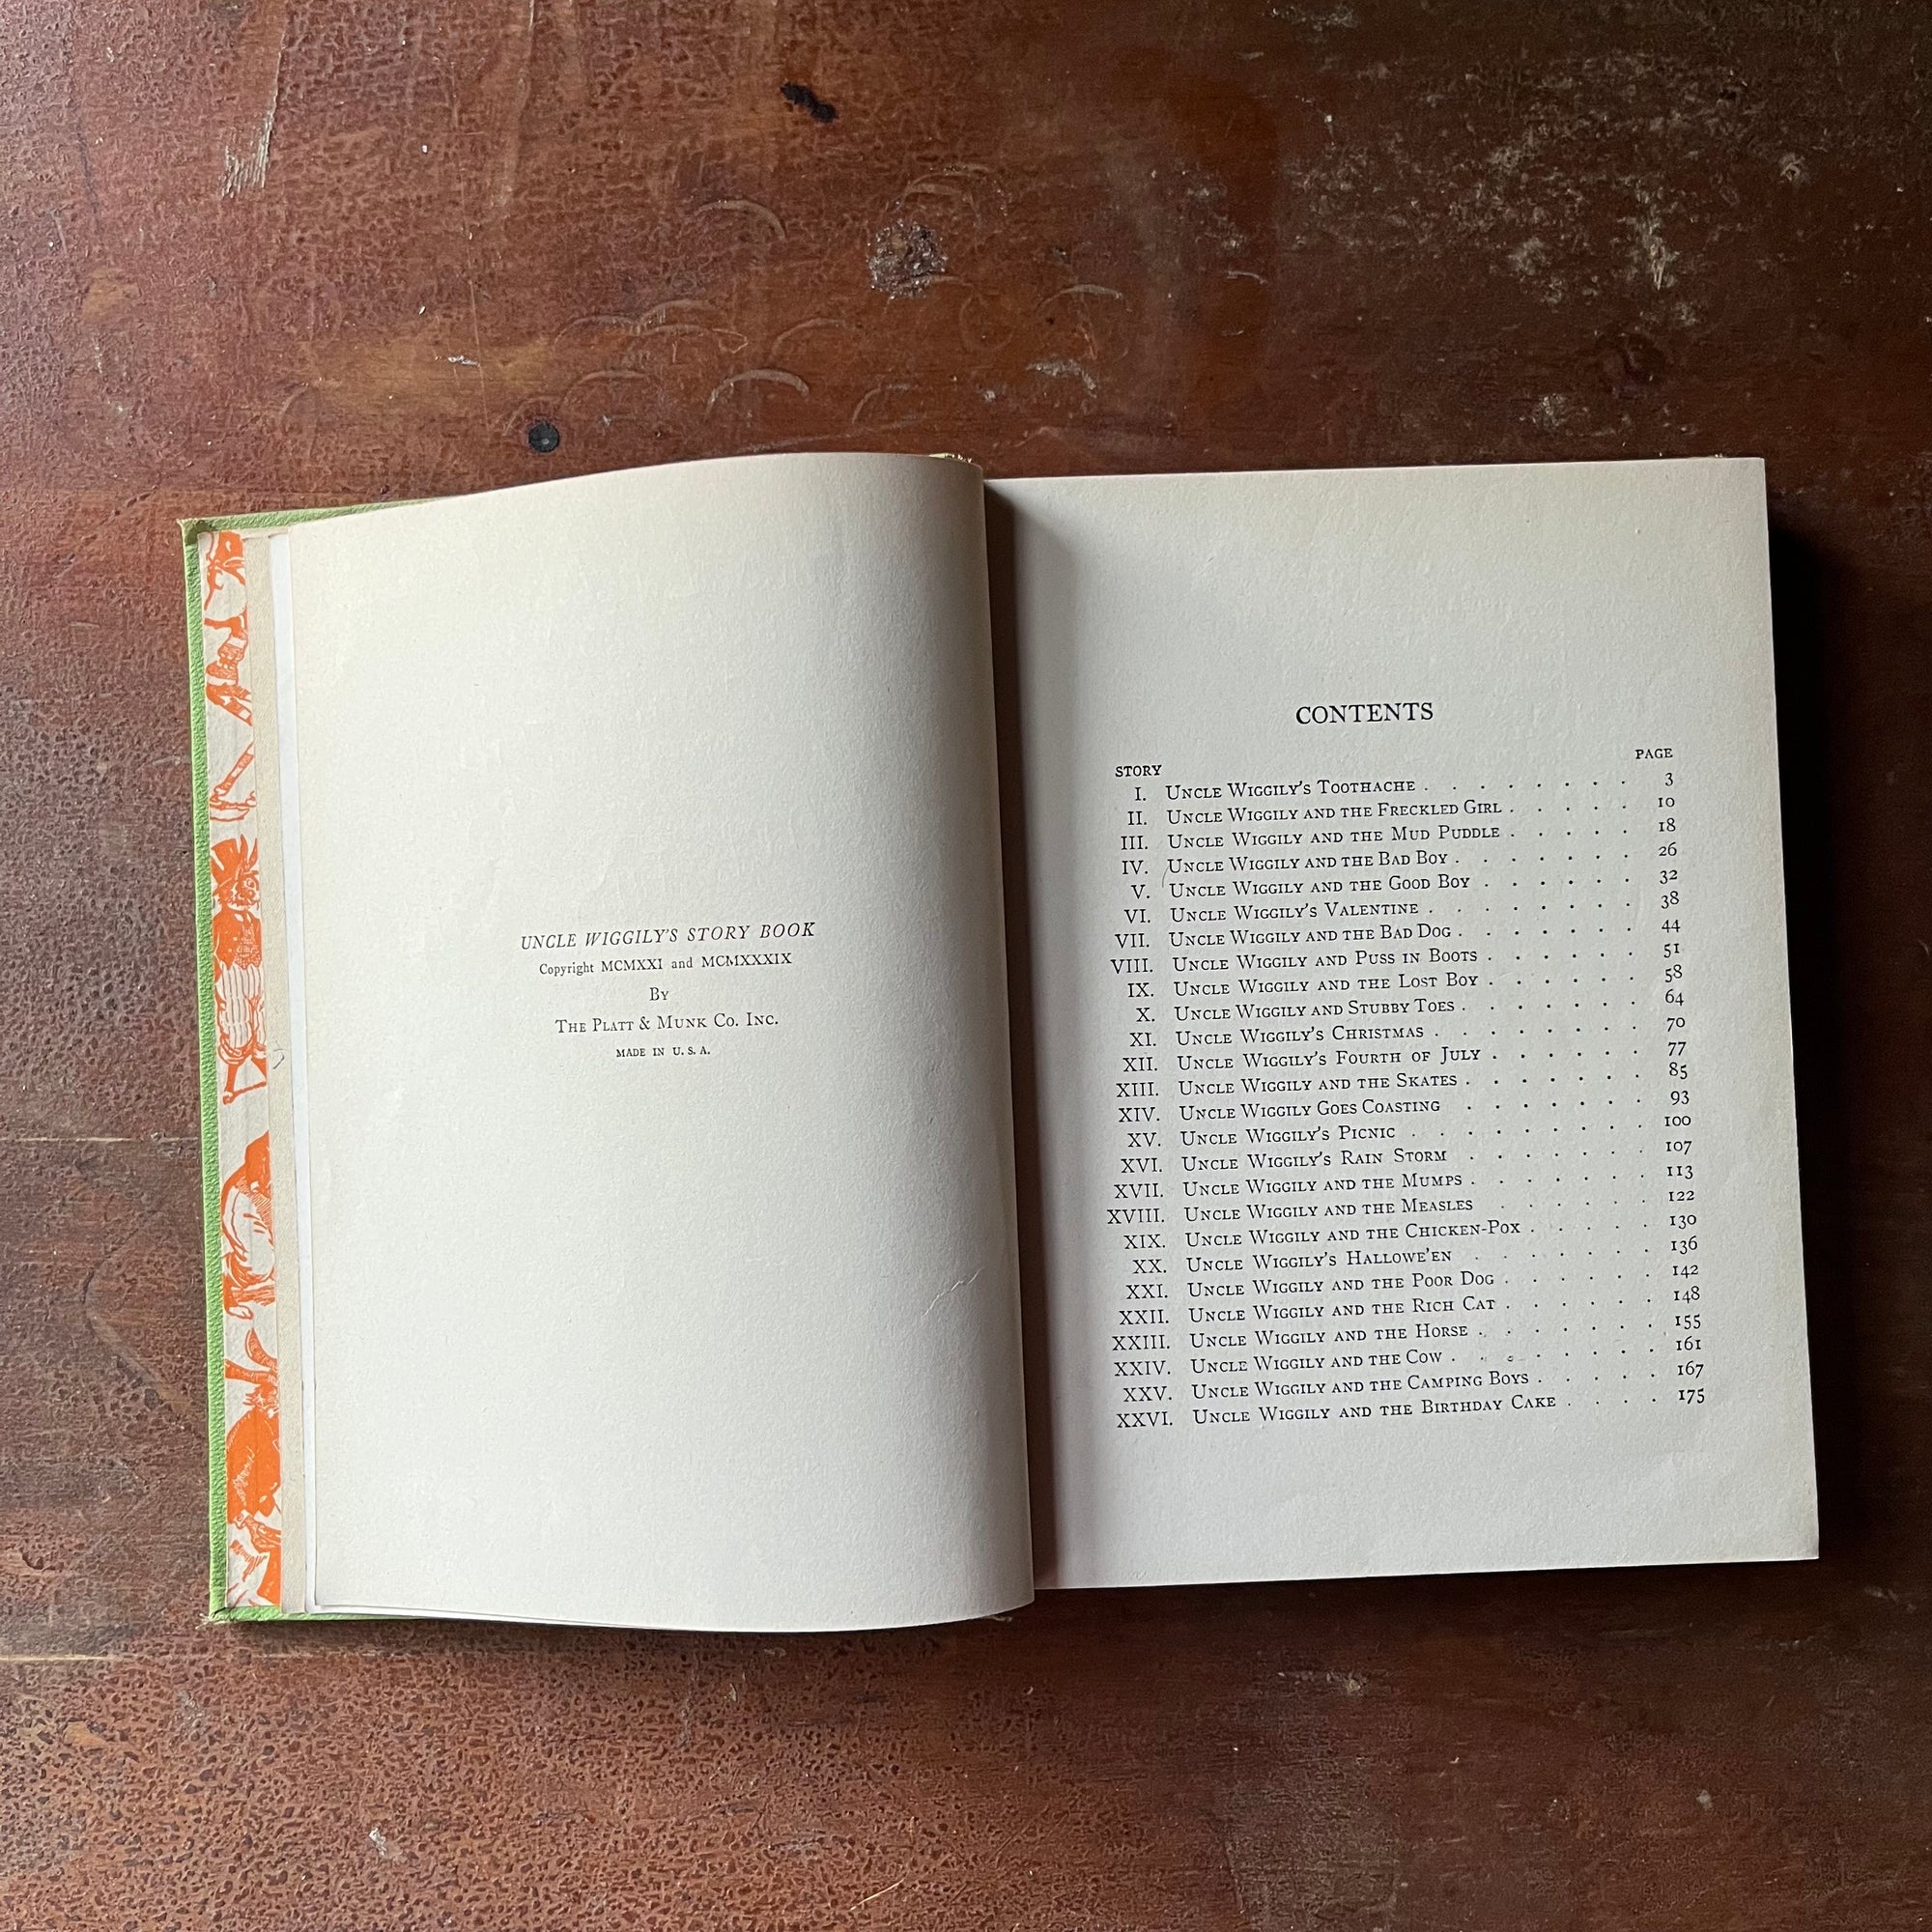 UNCLE WIGGILY'S STORY BOOK
Copyright MCMXXI and MCMXXXIX
By
The Platt & Munk Co. Inc.
MADE IN U. S. A.
CONTENTS
STORY PAGE
I. Uncle Wiggily's Toothache . . . . . . . . 3
II. Uncle Wiggily and the Freckled Girl . . . . . 10
III. Uncle Wiggily and the Mud Puddle . . . . . 18
IV. Uncle Wiggily and the Bad Boy . . . . . . . 26
V. Uncle Wiggily and the Good Boy . . . . . . 32
VI. Uncle Wiggily's Valentine . . . . . . . . 38
VII. Uncle Wiggily and the Bad Dog . . . . . . . 44
VIII. Uncle Wiggily and Puss in Boots . . . . . . 51
IX. Uncle Wiggily and the Lost Boy . . . . . . 58
X. Uncle Wiggily and Stubby Toes . . . . . . . 64
XI. Uncle Wiggily's Christmas . . . . . . . . 70
XII. Uncle Wiggily's Fourth of July . . . . . . 77
XIII. Uncle Wiggily and the Skates . . . . . . . 85
XIV. Uncle Wiggily Goes Coasting . . . . . . . 93
XV. Uncle Wiggily's Picnic . . . . . . . . . 100
XVI. Uncle Wiggily's Rain Storm . . . . . . . 107
XVII. Uncle Wiggily and the Mumps . . . . . . . 113
XVIII. Uncle Wiggily and the Measles . . . . . . 122
XIX. Uncle Wiggily and the Chicken-Pox . . . . . 130
XX. Uncle Wiggily's Hallowe'en . . . . . . . 136
XXI. Uncle Wiggily and the Poor Dog . . . . . . 142
XXII. Uncle Wiggily and the Rich Cat . . . . . . 148
XXIII. Uncle Wiggily and the Horse . . . . . . . 155
XXIV. Uncle Wiggily and the Cow . . . . . . . . 161
XXV. Uncle Wiggily and the Camping Boys . . . . . 167
XXVI. Uncle Wiggily and the Birthday Cake . . . . 175